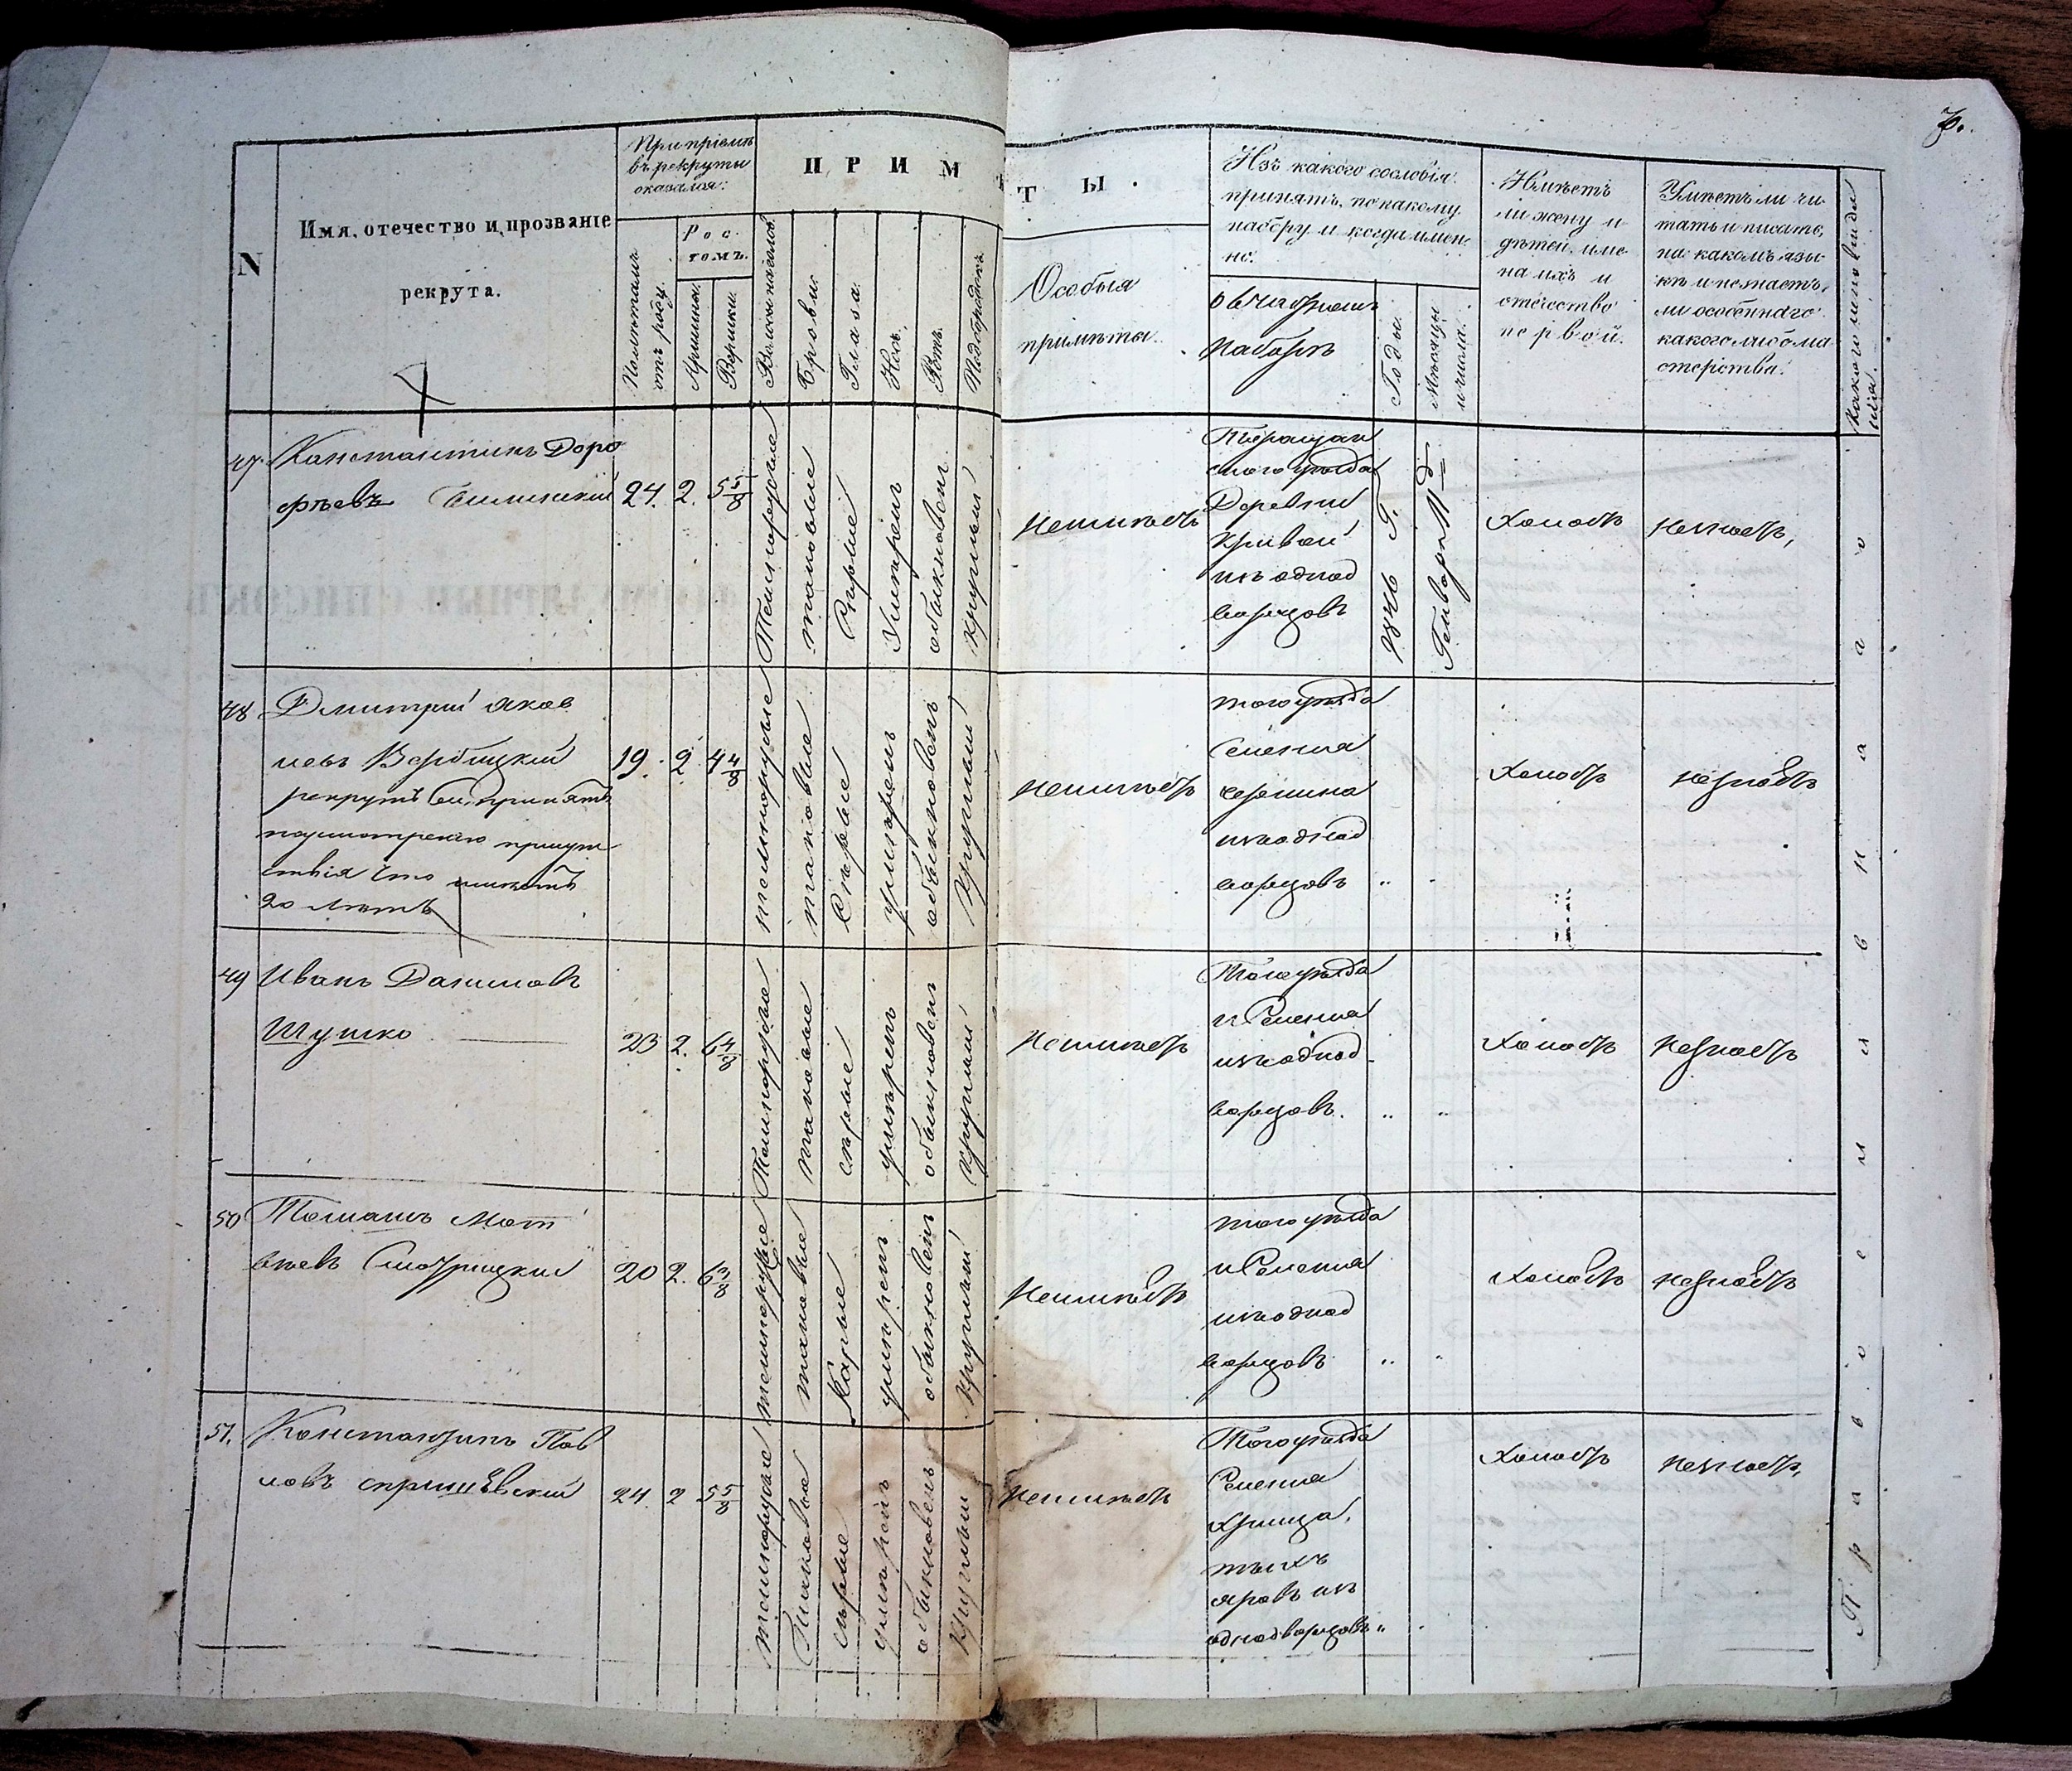 7.
N
Имя, отечество и прозваніе
рекрута.
При пріемѣ
въ рекруты
оказался:
Сколько лѣтъ
отъ роду.
Рос
томъ.
Аршины.
Вершки.
ПРИМѢТЫ.
Брови.
Глаза.
Носъ.
Ротъ.
Подбородокъ.
Особыя
примѣты.
Изъ какого сословія
принятъ, по какому
набору и когда имен
но.
наборъ
Годы.
Мѣсяцы
и числа.
Имѣетъ
ли жену и
дѣтей, име
на ихъ и
отчество
первой.
Умѣетъ ли чи
тать и писать,
на какомъ язы
кѣ и не знаетъ
ли особеннаго
какого либо ма
стерства.
Какого исповѣда
нія.
47.
Константинъ Доро
фѣевъ
24.
2.
5 5/8
Темнорусые
таковые
Сѣрые
Умѣрен
обыкновен
круглый
Неимѣетъ
Деревни
Кривой
изъ однод
ворцовъ
1846 г.
Генваря 11
Холостъ
незнаетъ,
Православнаго
48
Дмитрій Яков
левъ Вербицкій
рекрутъ сей принятъ
по усмотренію присут
ствія что имѣетъ
20 лѣтъ
19.
2.
4 4/8
темнорусые
таковые
Сѣрые
умѣренъ
обыкновенъ
Круглый
неимѣетъ
того уѣзда
Селенія
изъ однод
ворцовъ
"
"
Холостъ
незнаетъ
49
Иванъ Даниловъ
Шушко
23
2.
6 4/8
Темнорусые
таковые
сѣрые
умѣренъ
обыкновенъ
Круглый
Неимѣетъ
Того уѣзда
и Селенія
изъ однод
ворцовъ.
"
"
Холостъ
незнаетъ
50
Томашъ Мат
вѣевъ Смотрицкій
20
2.
темнорусые
таковые
Карые
умѣрен
обыкновен
Круглый
Неимѣетъ
того уѣзда
и Селенія
изъ однод
ворцовъ
"
"
Холостъ
незнаетъ
51.
Константинъ Пав
ловъ
24.
2
5 5/8
темнорусые
таковые
сѣрые
умѣрен
обыкновенъ
Круглый
Неимѣетъ
Того уѣзда
Селенія
яровъ изъ
однодворцовъ
"
Холостъ
незнаетъ,